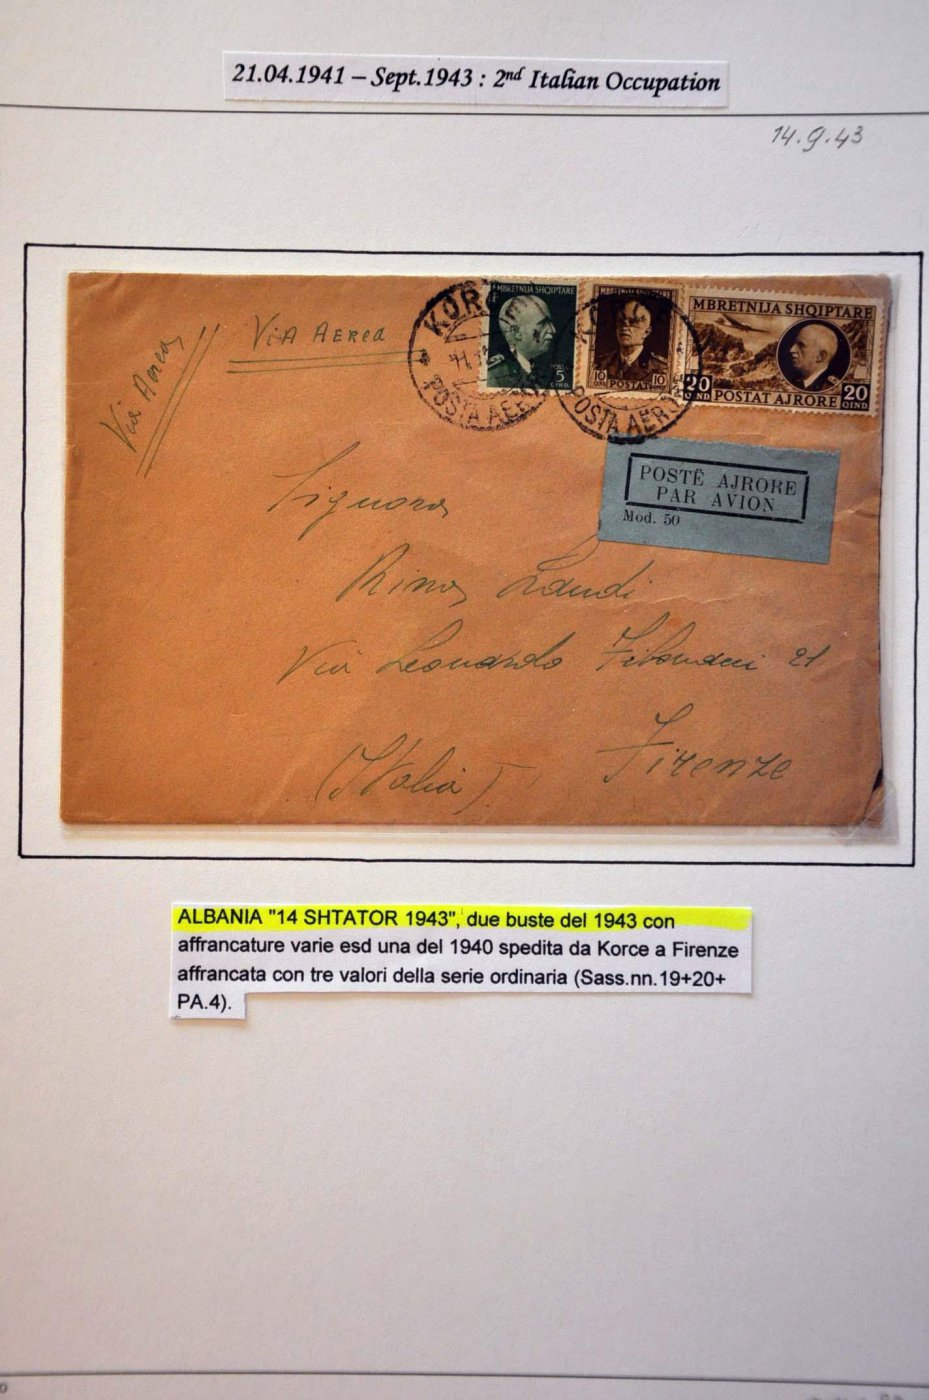 21.04.1941 – Sept.1943 : 2nd Italian Occupation
14.9.43
Via Aerea
VIA AEREA
KORÇË
POSTA AERORE
MBRETNIJA SHQIPTARE
5
QIND.
MBRETNIJA SHQIPTARE
10 POSTAT 10
QIND QIND
POSTA AERORE
MBRETNIJA SHQIPTARE
20 POSTAT AJRORE 20
QIND QIND
POSTË AJRORE
PAR AVION
Mod. 50
Signora
Rina Landi
Via Leonardo Fibonacci 21
Firenze
(Italia)
ALBANIA "14 SHTATOR 1943", due buste del 1943 con
affrancature varie esd una del 1940 spedita da Korce a Firenze
affrancata con tre valori della serie ordinaria (Sass.nn.19+20+
PA.4).